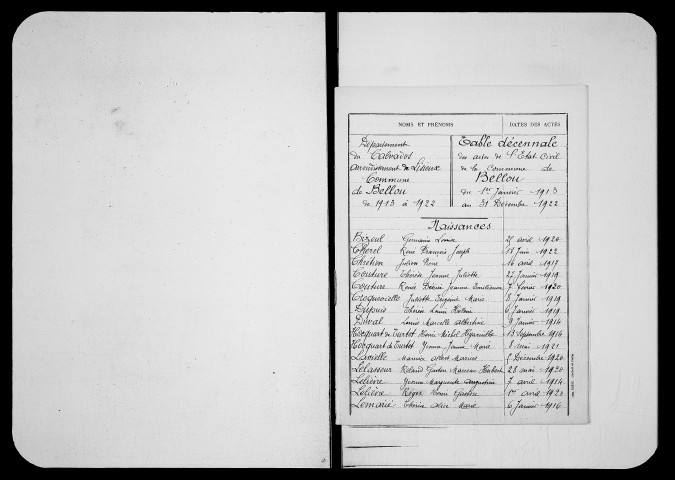 NOMS ET PRÉNOMS
DATES DES ACTES
Département
du Calvados
Arrondissement de Lisieux
Commune
de Bellou
de 1913 à 1922
Table décennale
des actes de l'Etat Civil
de la Commune de
Bellou
du 1er Janvier 1913
au 31 Décembre 1922
Naissances
Bizeul Germaine Louise 25 avril 1920
Cherel René François Joseph 18 Juin 1922
Chrétien Julien René 16 avril 1917
Couture Thérèse Jeanne Juliette 22 Janvier 1919
Couture Renée Jeanne 7 février 1920
Juliette Eugénie Marie 8 Janvier 1919
Dupuis Thérèse Laure 6 Janvier 1919
Duval Louise Marcelle Albertine 9 Janvier 1914
Hocquart de Turtot Henri Michel 13 septembre 1916
Hocquart de Turtot Yvonne Jeanne Marie 8 mai 1921
Maurice Albert Marcel Décembre 1920
Levasseur Roland Gaston Marceau 28 mai 1920
Lelièvre Yvonne Marguerite Augustine 7 avril 1914
Lelièvre Roger Gaston 1er avril 1920
Lemarié Thérèse Alice Marie 6 Janvier 1916